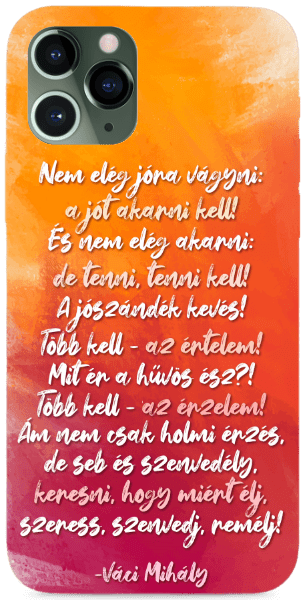 Nem elég jóra vágyni:
a jót akarni kell!
És nem elég akarni:
de tenni, tenni kell!
A jószándék kevés!
Több kell - az értelem!
Mit ér a hűvös ész?!
Több kell - az érzelem!
Ám nem csak holmi érzés,
de seb és szenvedély,
keresni, hogy miért élj,
szeress, szenvedj, remélj!
-Váci Mihály